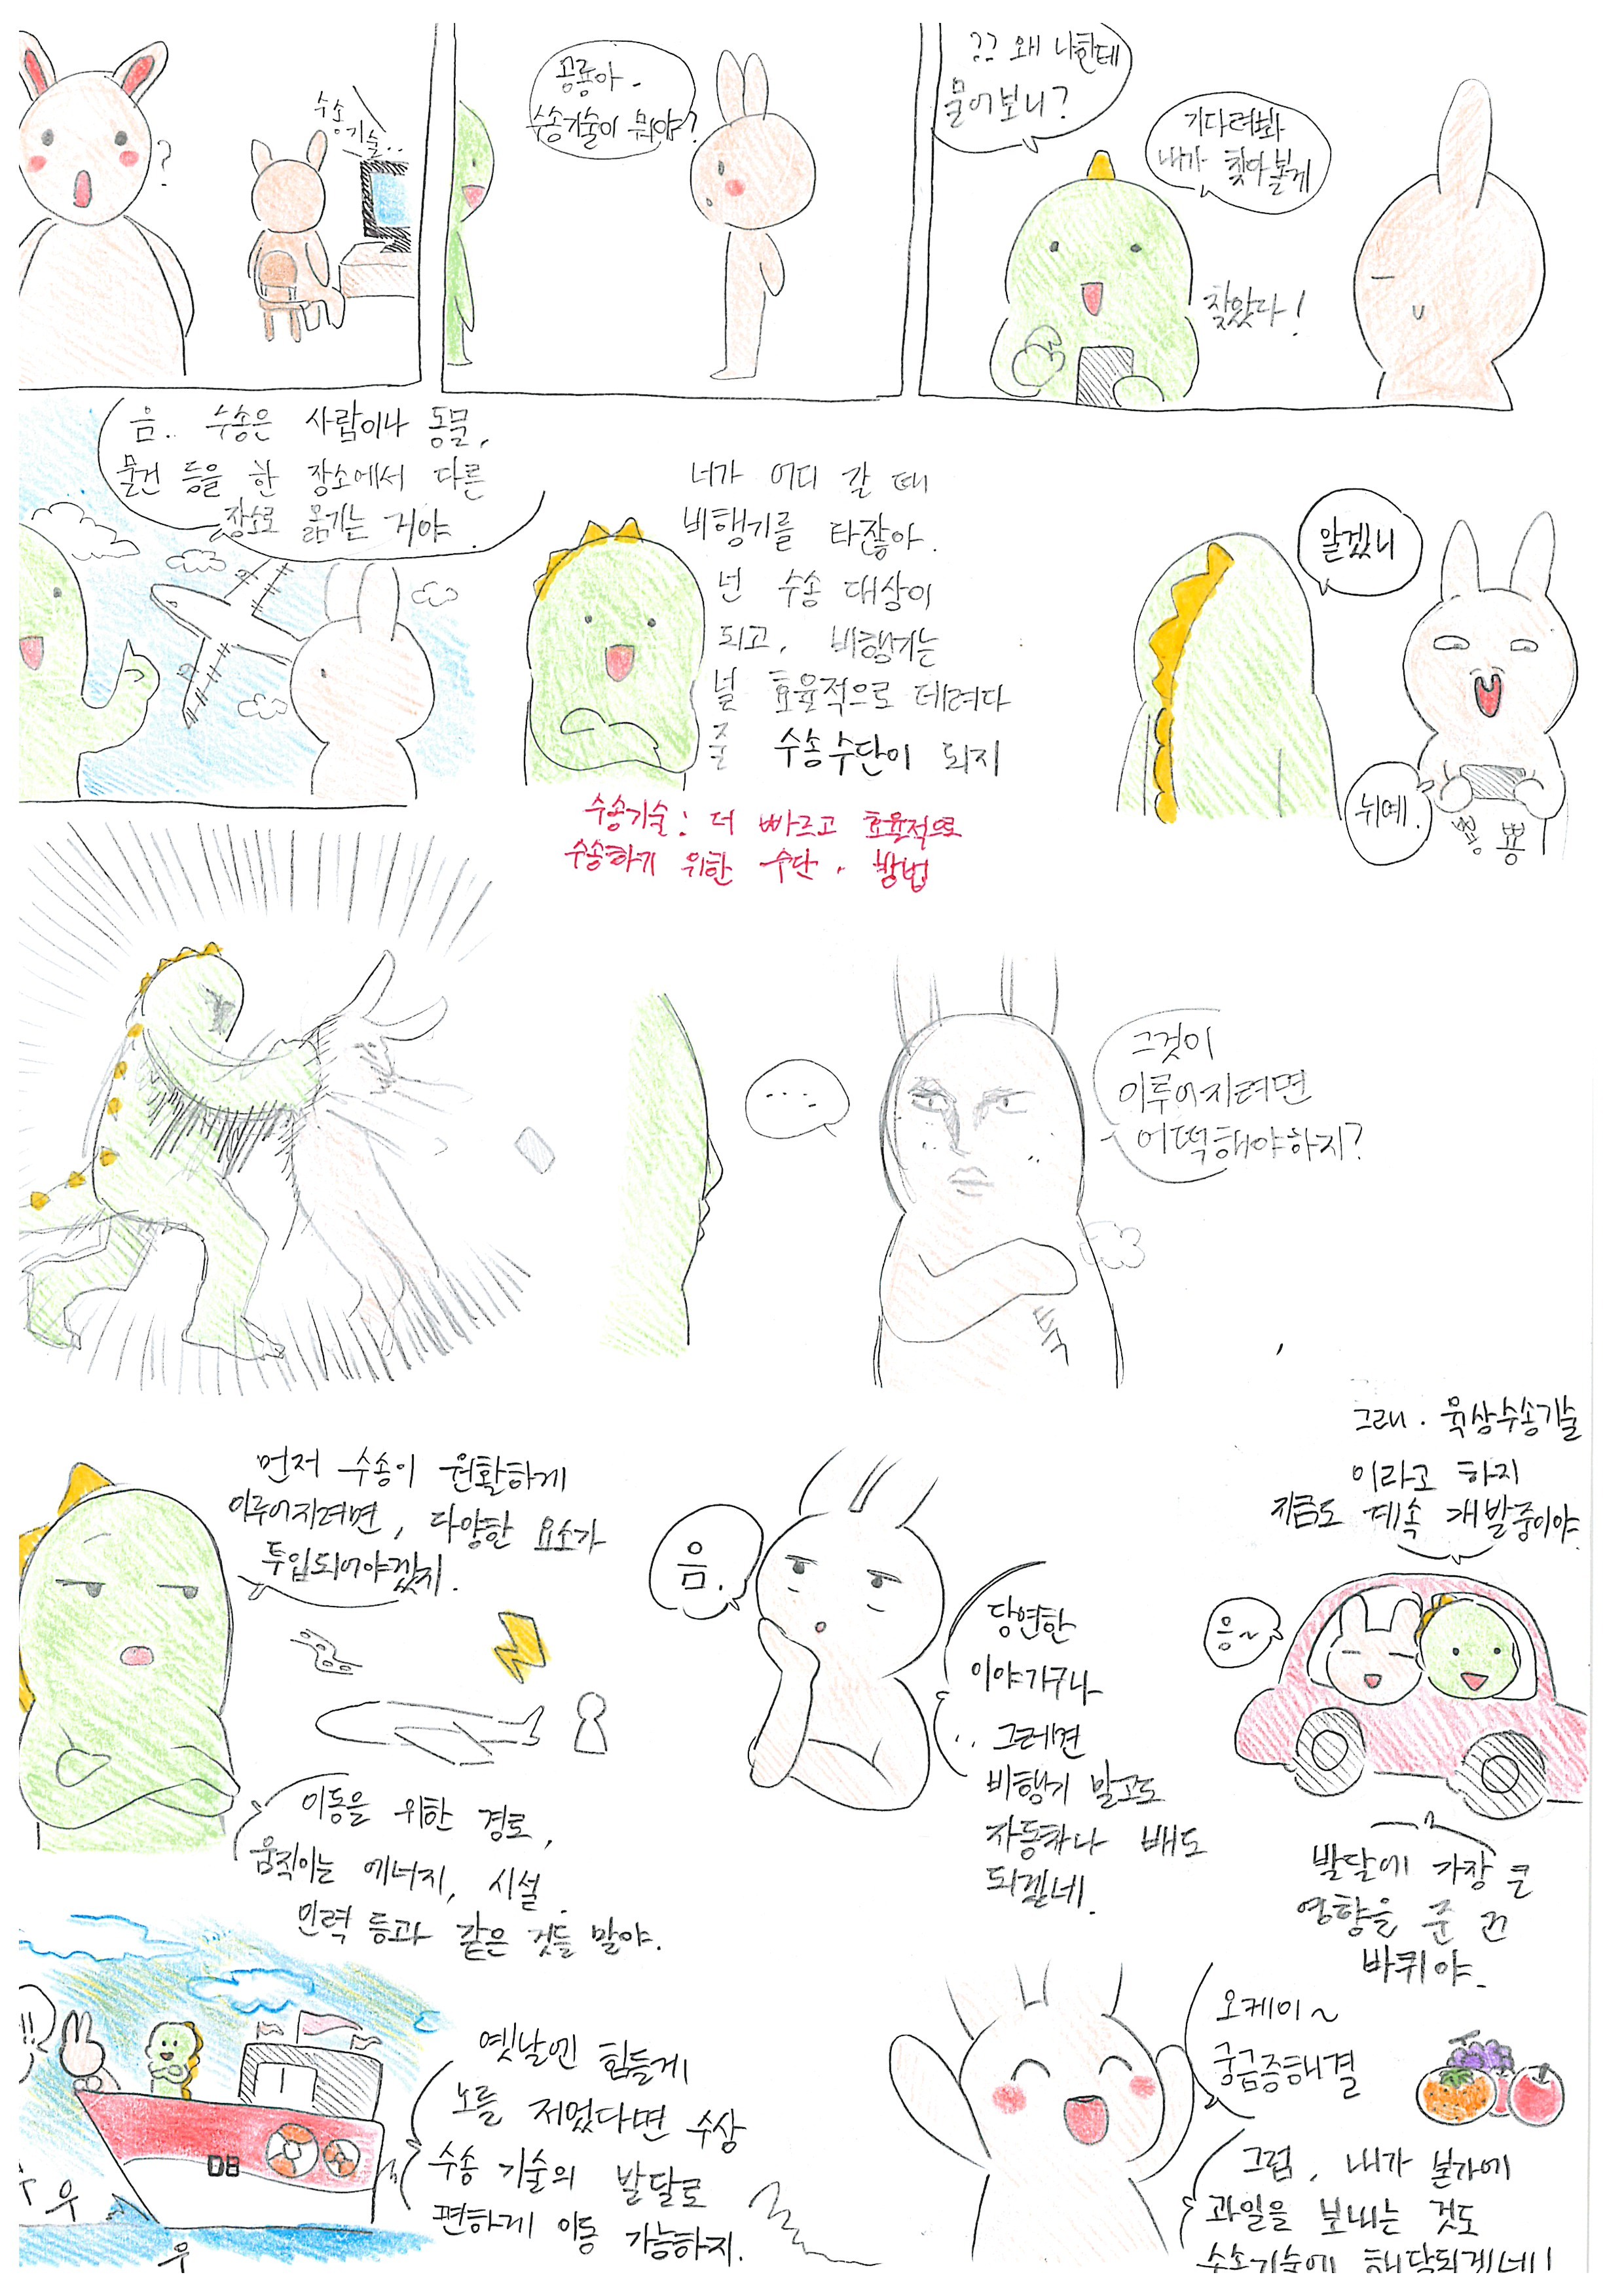 ?
수송
기술..
공룡아.
수송기술이 뭐야?
?? 왜 나한테
물어보니?
기다려봐
내가 찾아볼게
찾았다!
음.. 수송은 사람이나 동물,
물건 등을 한 장소에서 다른
장소로 옮기는 거야.
너가 어디 갈 때
비행기를 타잖아.
넌 수송 대상이
되고, 비행기는
널 효율적으로 데려다
줄 수송수단이 되지
수송기술: 더 빠르고 효율적으로
수송하기 위한 수단·방법
알겠니
뉘예.
뿅 뿅
...
그것이
이루어지려면
어떡해야하지?
툭
먼저 수송이 원활하게
이루어지려면, 다양한 요소가
투입되어야겠지.
이동을 위한 경로,
움직이는 에너지, 시설
인력 등과 같은 것들 말야.
음.
당연한
이야기구나
.. 그러면
비행기 말고도
자동차나 배도
되겠네.
그래. 육상수송기술
이라고 하지
지금도 계속 개발중이야.
응~
발달에 가장 큰
영향을 준 건
바퀴야.
!!
D8
우
우
옛날엔 힘들게
노를 저었다면 수상
수송 기술의 발달로
편하게 이동 가능하지.
오케이~
궁금증해결
그럼, 내가 본가에
과일을 보내는 것도
수송기술에 해당되겠네!